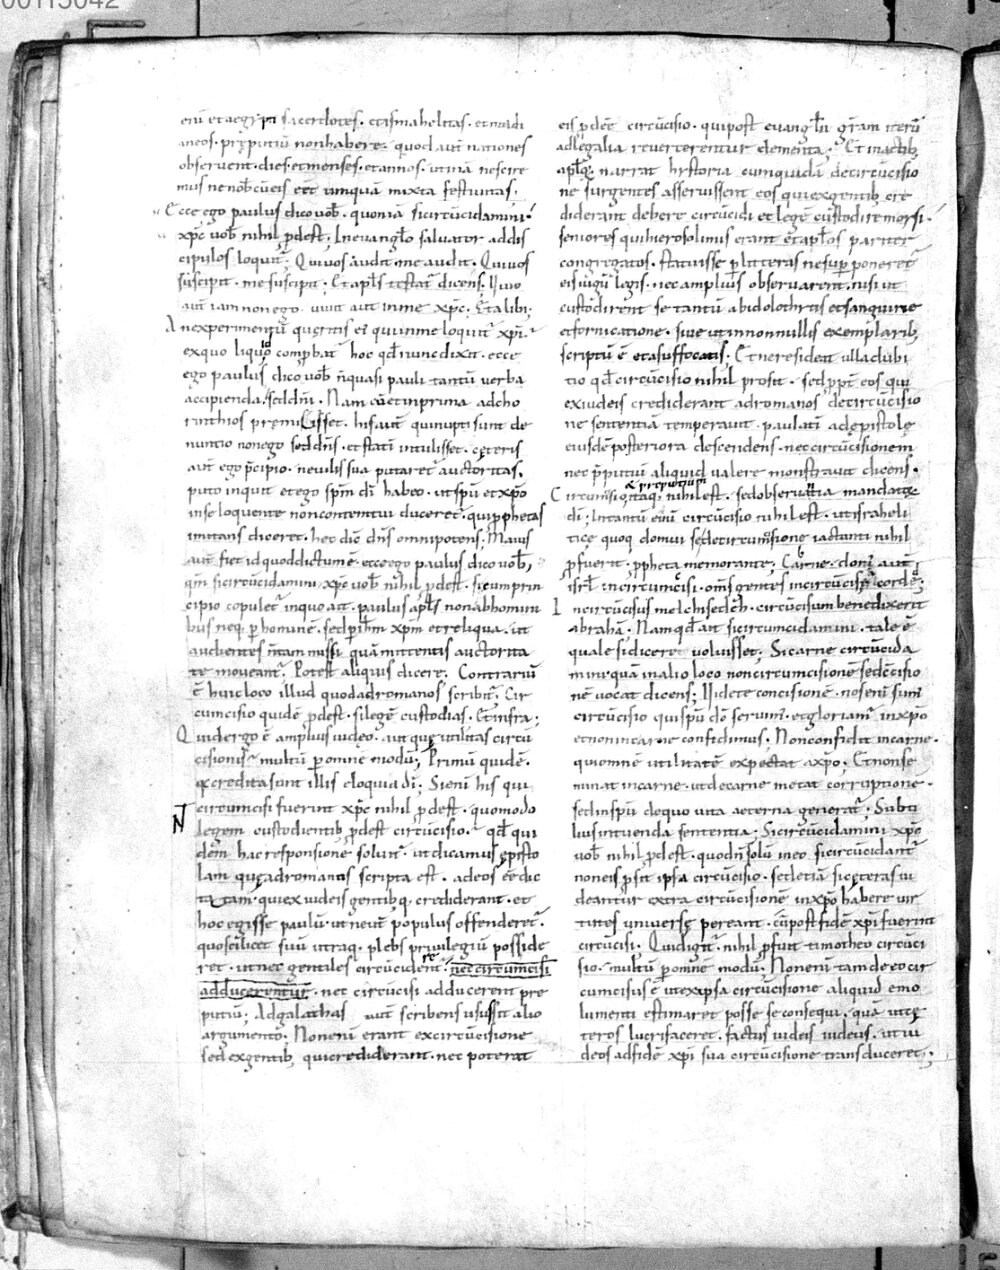 00115042
eiū et aegypti sacerdotes· et ismahelitas· et madi
aneos· prępitiū non habere· quod aut nationes
observent· dies· et menses· et annos· utinā nescire
mus ne nob cū eis eēt umquā mixta festivitas·
Ecce ego paulus dico vob̄· quoniā si circūcidamini·
xp̄c vob̄ nihil p̱dest· In evanglo salvator ad dis
cipulos loquit̄· Qui vos audit me audit· Qui vos
suscipit· me suscipit· Et apl̄s testat̄ dicens· Vivo
aut̄ iam non ego· vivit aut̄ in me xp̄c· Et alibi·
An experimentū quęritis ei qui in me loquit̄ xp̄i·
ex quo liquido comp̱bat̄ hoc qd̄ nunc dixit· ecce
ego paulus dico vob̄ n̄ quasi pauli tantū verba
accipienda· sed dn̄i· Nam cū et in prima ad cho
rinthios pręmisisset· his aut̄ qui nupti sunt de
nuntio non ego sed dn̄s· et stati intulisset· cęteris
aut̄ ego p̄cipio· ne vilis sua putaret̄ auctoritas·
puto inquit et ego sp̄m dī habeo· ut sp̄u et xp̄o
in se loquente non contemtui duceret̄· qui p̱phetas
imitans diceret· hęc dic̄ dn̄s omnipotens· Maius
aut̄ fiet id quod dictum ē· ecce ego paulus dico vob̄,
qm̄ si circūcidamini xp̄c vob̄ nihil p̱dest· si eum prin
cipio copulet̄ in quo ait· paulus apl̄s non ab homini
bus neq· p̱ hominē· sed p̱ ihm̄ xp̄m et reliqua· ut
audientes n̄ tam missi quā mittentis auctorita
te moveant̄· Potest aliquis dicere· Contrariū
ē huic loco illud quod ad romanos scribit̄· Cir
cumcisio quidē p̱dest· si legē custodias· Et infra·
Quid ergo ē amplius iudęo· aut quę utilitas circū
cisionis· multū p̱ omnē modū· Primū quidē·
q̄ credita sunt illis eloquia dī· Si enī his qui
circumcisi fuerint xp̄c nihil p̱dest· quomodo
legem custodientib p̱dest circūcisio· qd̄ qui
dem hac responsione solvit̄· ut dicamus episto
lam quę ad romanos scripta est· ad eos eē dic
tatam· qui ex iudeis gentibq· crediderant· et
hoc egisse paulū· ut neut̄ populus offenderet̄·
quo scilicet suū utraq· plebs privilegiū posside
ret· ut nec gentiles circūciderent̄· nec circumcisi
adducerentur· nec circūcisi adducerent pre
putiū; Ad galathas aut scribens usus sit alio
argumento· Non enī erant ex circūcisione
sed ex gentib· qui crediderant· nec poterat
eis p̱dēē circūcisio· qui post evanglii gr̄am iterū
ad legalia reverterentur elementa· Et in actib
aplōq· narrat hystoria cum quidā de circūcisio
ne surgentes asseruissent eos qui ex gentib cre
diderant debere circūcidi et legē custodire moysi·
seniores qui hierosolimis erant et apl̄os pariter
congregatos· statuisse p̱ litteras ne sup̱poneret̄
eis iugū legis· nec amplius observarent· nisi ut
custodirent se tantū ab idolothitis et sanguine
et fornicatione· sive ut in nonnullis exemplarib
scriptū ē et a suffocatis· Et ne resideat ulla dubi
tio qd̄ circūcisio nihil prosit· sed pp̄t eos qui
ex iudeis crediderant ad romanos de circūcisio
ne sententiā temperavit· paulatī ad epistolę
eiusdē posteriora descendens· nec circūcisionem
nec p̄putiū aliquid valere monstravit dicens·
& prepucium
Circumcisio itaq· nihil est· sed observantia mandatoꝝ
dī; In tantū enī circūcisio nihil est· ut israheli
ticę quoq domui sed et circumcisione iactanti nihil
p̱fuerit· p̱pheta memorante· Carne· domꝰ aut̄
isrl̄ incircumcisi· oms gentes incircūcisę cordę·
Incircūcisus melchisedech· circūcisum benedixerit
abrahā· Nam qd̄ ait si circumcidamini· tale ē
quale si diceret voluisset· Si carne circūcida
mini· quā in alio loco non circumcisionē sed cēcisio
nē vocat dicens; Videte concisionē· nos enī sum
circūcisio qui sp̄u dō servim̄· et gloriam̄ in xp̄o
et non in carne confidimus· Non confidit in carne·
qui omnē utilitatē expectat a xp̄o; Et non se
minat in carne· ut de carne metat corruptionē·
sed in sp̄u de quo vita aeterna generat̄· Subti
lius intuenda sententia; Si circūcidamini xp̄c
vob nihil p̱dest· quod n̄ solū in eo si circūcidant̄
non eis p̱sit ipsa circūcisio· sed etiā si cęteras vi
deantur extra circūcisionē in xp̄o habere vir
tutes universę pereant· cū post fidē xp̄i fuerint
circūcisi· Quid igit̄· nihil p̱fuit timotheo circūci
sio· multū p̱ omnē modū; Non enī tam de eo cir
cumcisus ē ut ex ipsa circūcisione aliquid emo
lumenti estimaret posse se consequi· quā ut cę
teros lucrifaceret· factus iudeis iudeus· ut iu
deos ad fidē xp̄i sua circūcisione transduceret;